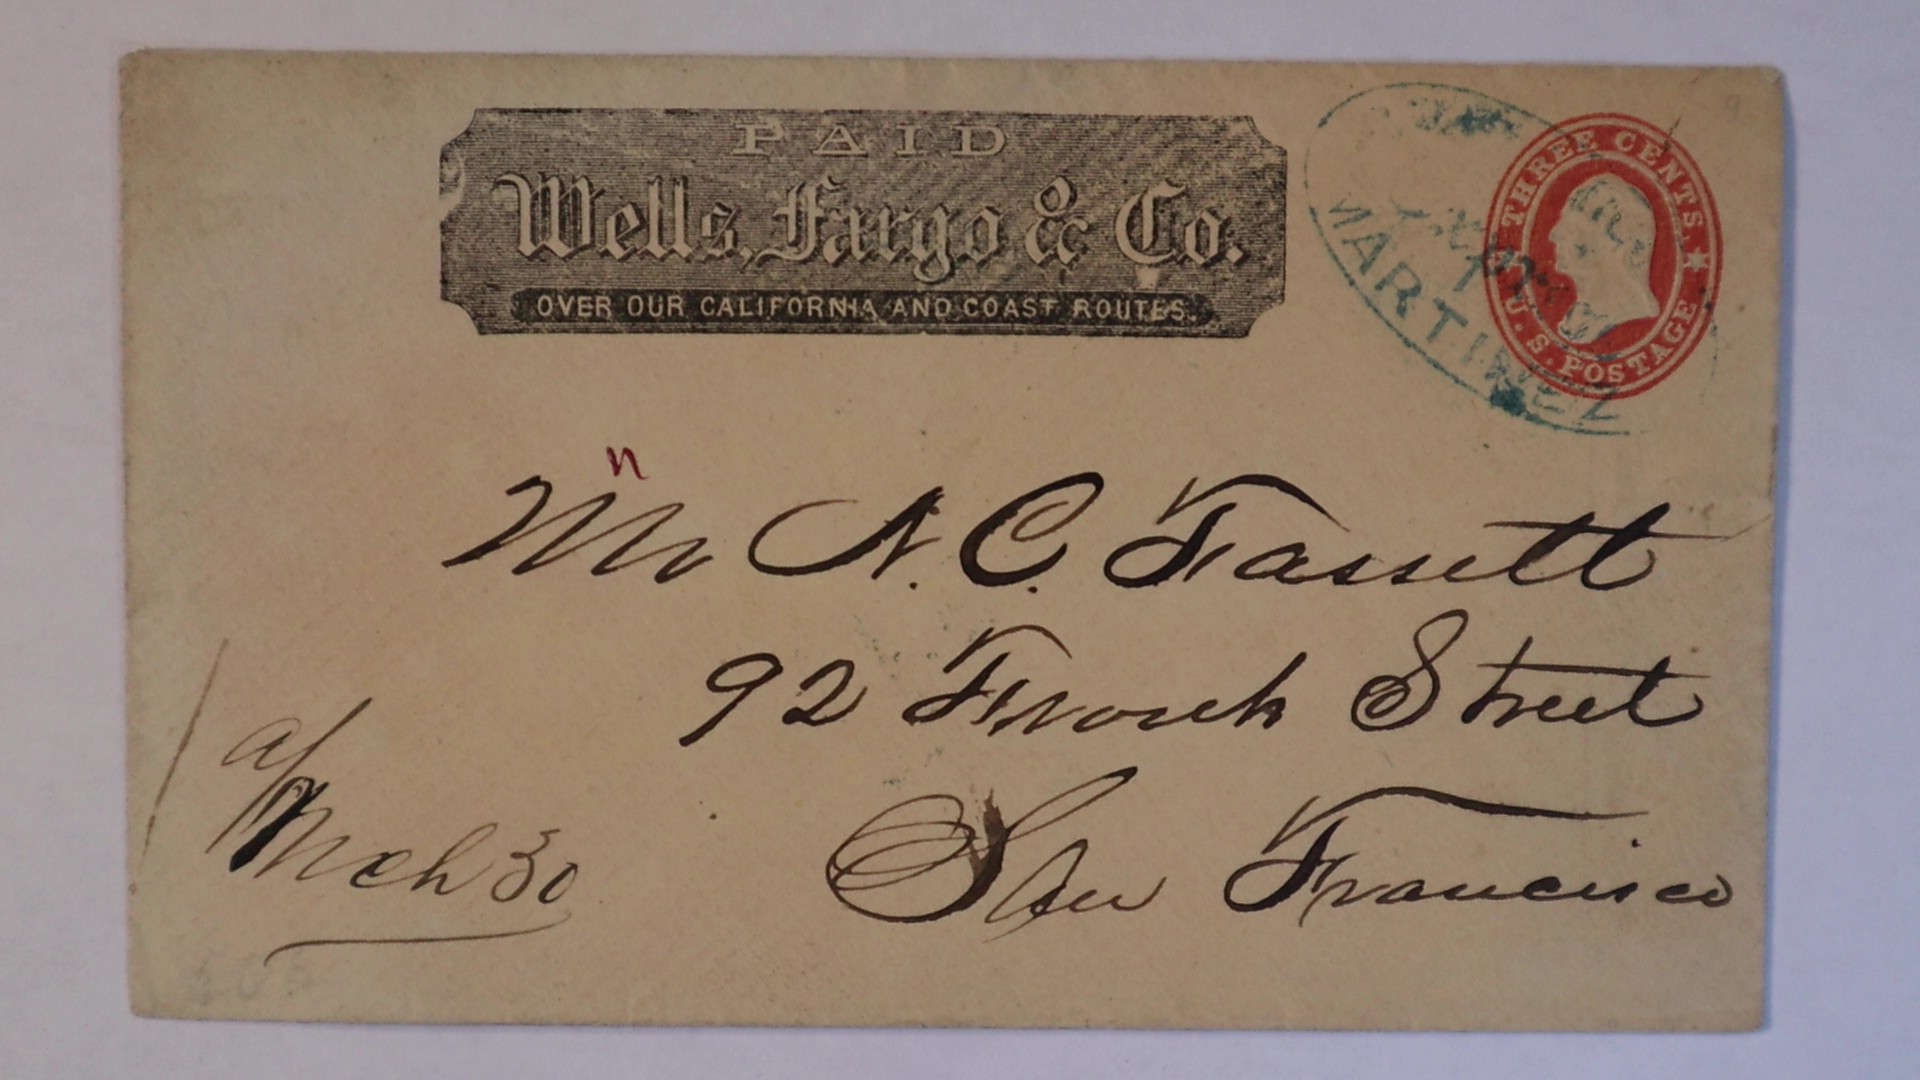 PAID
Wells, Fargo & Co.
OVER OUR CALIFORNIA AND COAST ROUTES.
THREE CENTS.
U.S. POSTAGE
MARTINEZ
n
Mr N. C. Fassett
92 Front Street
San Francisco
a/
Mch 30